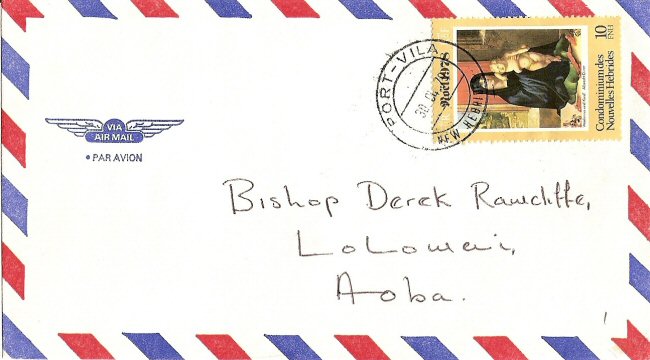 Condominium des
Nouvelles Hébrides
10
FNH
Noël 1978
PORT-VILA
NEW HEBRI
VIA
AIR MAIL
• PAR AVION
Bishop Derek Rawcliffe,
Lolowai,
Aoba.